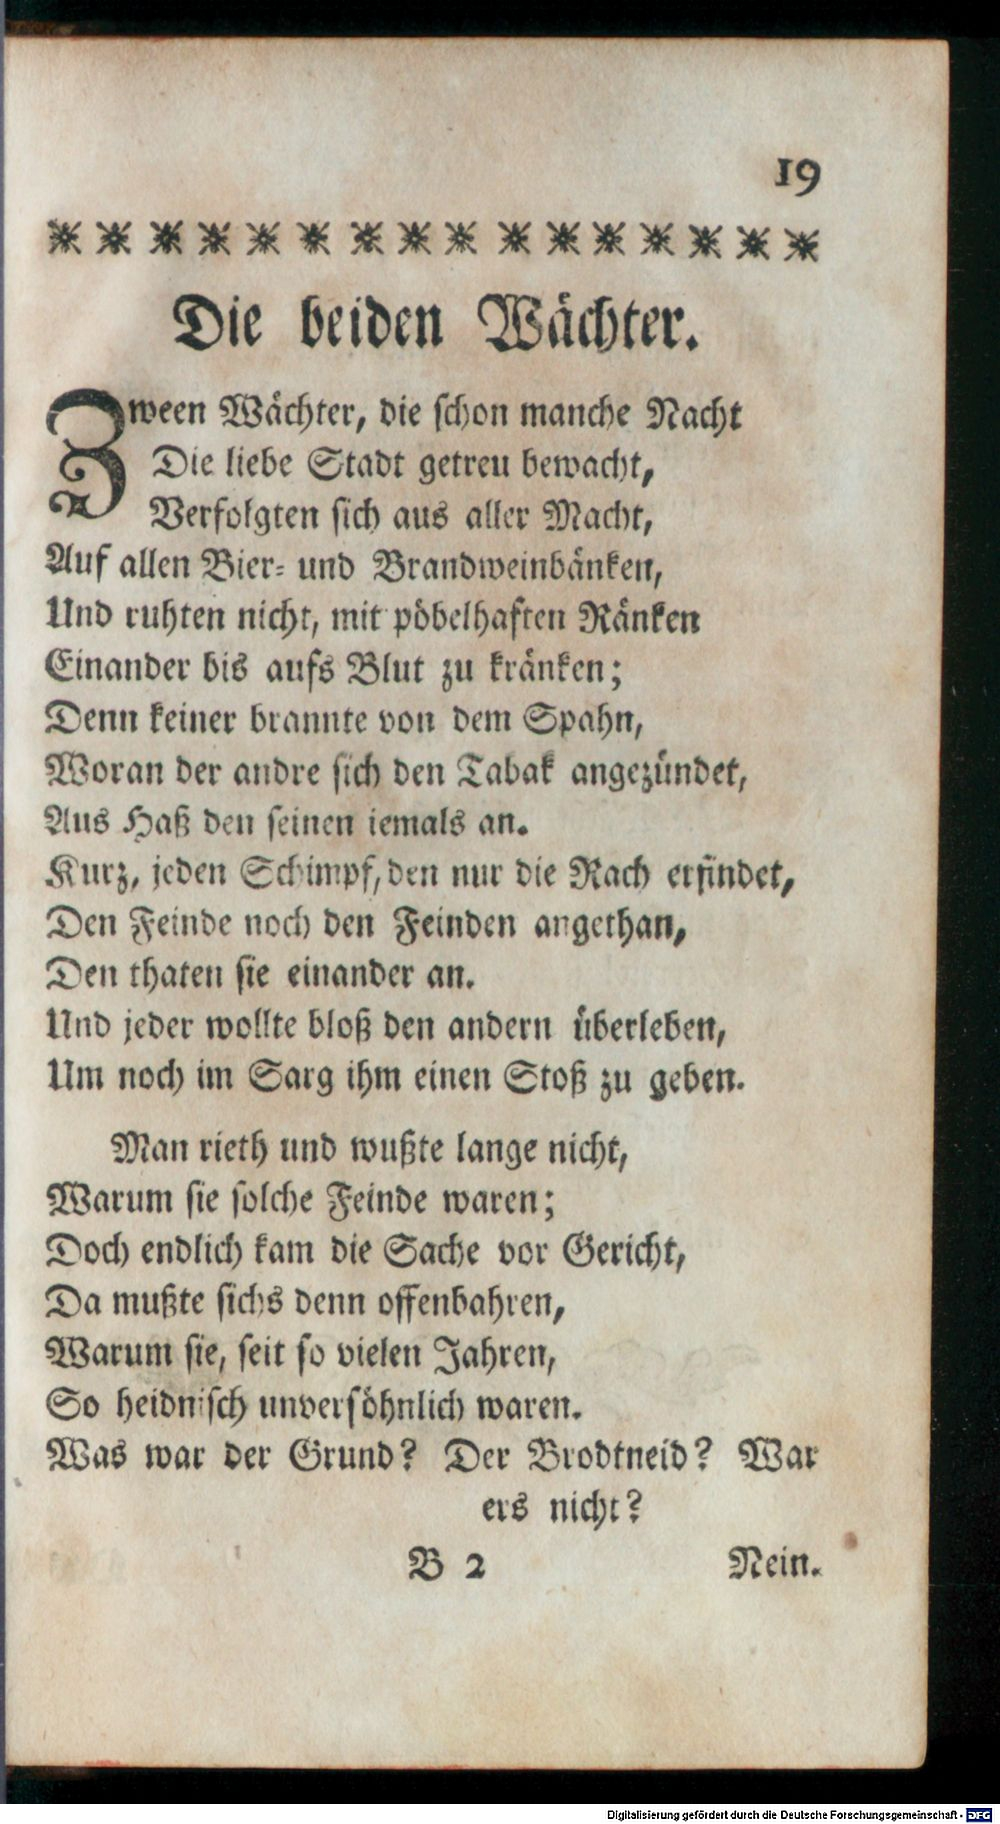 19
Die beiden Wächter.
Zween Wächter, die schon manche Nacht
Die liebe Stadt getreu bewacht,
Verfolgten sich aus aller Macht,
Auf allen Bier- und Brandweinbänken,
Und ruhten nicht, mit pöbelhaften Ränken
Einander bis aufs Blut zu kränken;
Denn keiner brannte von dem Spahn,
Woran der andre sich den Tabak angezündet,
Aus Haß den seinen iemals an.
Kurz, jeden Schimpf, den nur die Rach erfindet,
Den Feinde noch den Feinden angethan,
Den thaten sie einander an.
Und jeder wollte bloß den andern überleben,
Um noch im Sarg ihm einen Stoß zu geben.
Man rieth und wußte lange nicht,
Warum sie solche Feinde waren;
Doch endlich kam die Sache vor Gericht,
Da mußte sichs denn offenbahren,
Warum sie, seit so vielen Jahren,
So heidnisch unversöhnlich waren.
Was war der Grund? Der Brodtneid? War
ers nicht?
B 2 Nein.
Digitalisierung gefördert durch die Deutsche Forschungsgemeinschaft - DFG